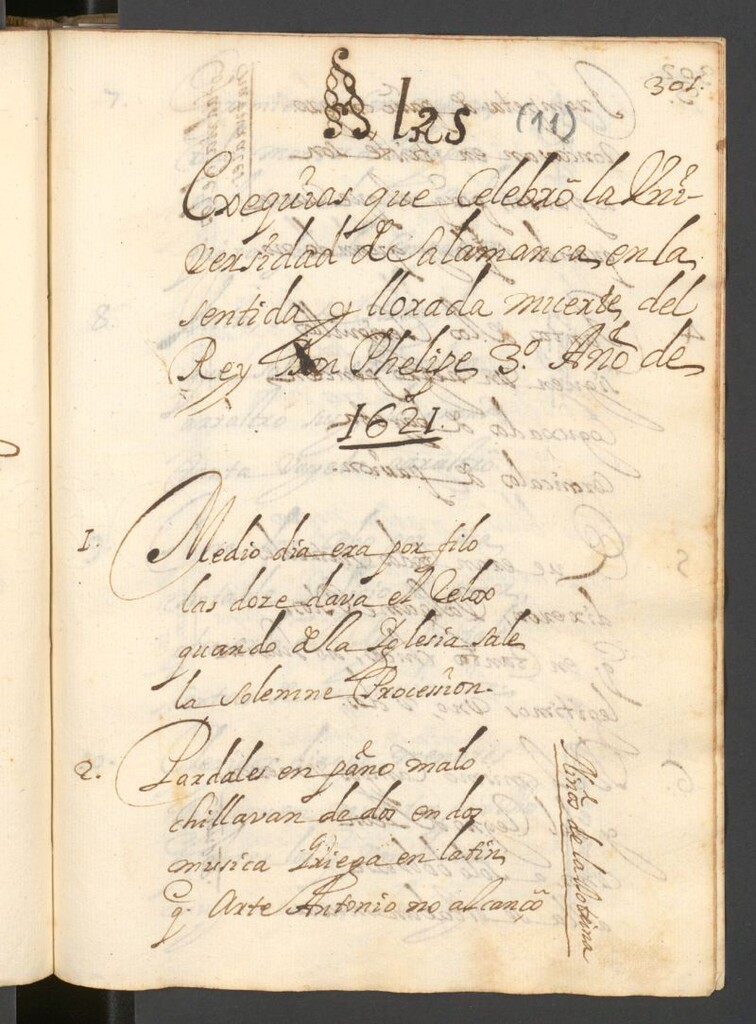 301.
A las (11)
Exequias que Celebrò la Uni-
versidad de Salamanca, en la
sentida y llorada muerte del
Rey Don Phelipe 3.º Año de
1621.
1. Medio dia era por filo
las doze dava el Relox
quando de la Iglesia sale
la solemne Procession.
2. Pardales en paño malo
chillavan de dos en dos
musica Griega en latin
q. Arte Antonio no alcançò
Niños de la Dotrina